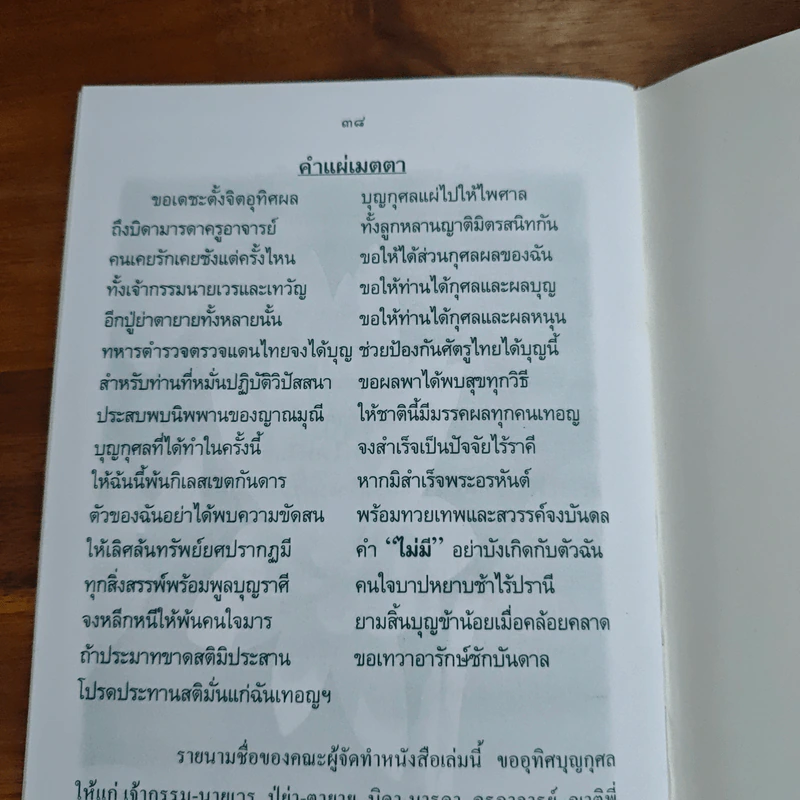 ๓๘
คำแผ่เมตตา
ขอเดชะตั้งจิตอุทิศผล บุญกุศลแผ่ไปให้ไพศาล
ถึงบิดามารดาครูอาจารย์ ทั้งลูกหลานญาติมิตรสนิทกัน
คนเคยรักเคยชังแต่ครั้งไหน ขอให้ได้ส่วนกุศลผลของฉัน
ทั้งเจ้ากรรมนายเวรและเทวัญ ขอให้ท่านได้กุศลและผลบุญ
อีกปู่ย่าตายายทั้งหลายนั้น ขอให้ท่านได้กุศลและผลหนุน
ทหารตำรวจตรวจแดนไทยจงได้บุญ ช่วยป้องกันศัตรูไทยได้บุญนี้
สำหรับท่านที่หมั่นปฏิบัติวิปัสสนา ขอผลพาได้พบสุขทุกวิธี
ประสบพบนิพพานของญาณมุณี ให้ชาตินี้มีมรรคผลทุกคนเทอญ
บุญกุศลที่ได้ทำในครั้งนี้ จงสำเร็จเป็นปัจจัยไร้ราคี
ให้ฉันนี้พ้นกิเลสเขตกันดาร หากมิสำเร็จพระอรหันต์
ตัวของฉันอย่าได้พบความขัดสน พร้อมทวยเทพและสวรรค์จงบันดล
ให้เลิศล้นทรัพย์ยศปรากฏมี คำ “ไม่มี” อย่าบังเกิดกับตัวฉัน
ทุกสิ่งสรรพ์พร้อมพูลบุญราศี คนใจบาปหยาบช้าไร้ปรานี
จงหลีกหนีให้พ้นคนใจมาร ยามสิ้นบุญข้าน้อยเมื่อคล้อยคลาด
ถ้าประมาทขาดสติมิประสาน ขอเทวาอารักษ์ชักบันดาล
โปรดประทานสติมั่นแก่ฉันเทอญฯ
รายนามชื่อของคณะผู้จัดทำหนังสือเล่มนี้ ขออุทิศบุญกุศล
ให้แก่ เจ้ากรรม-นายเวร ปู่ย่า-ตายาย บิดา มารดา ครูอาจารย์ ญาติพี่